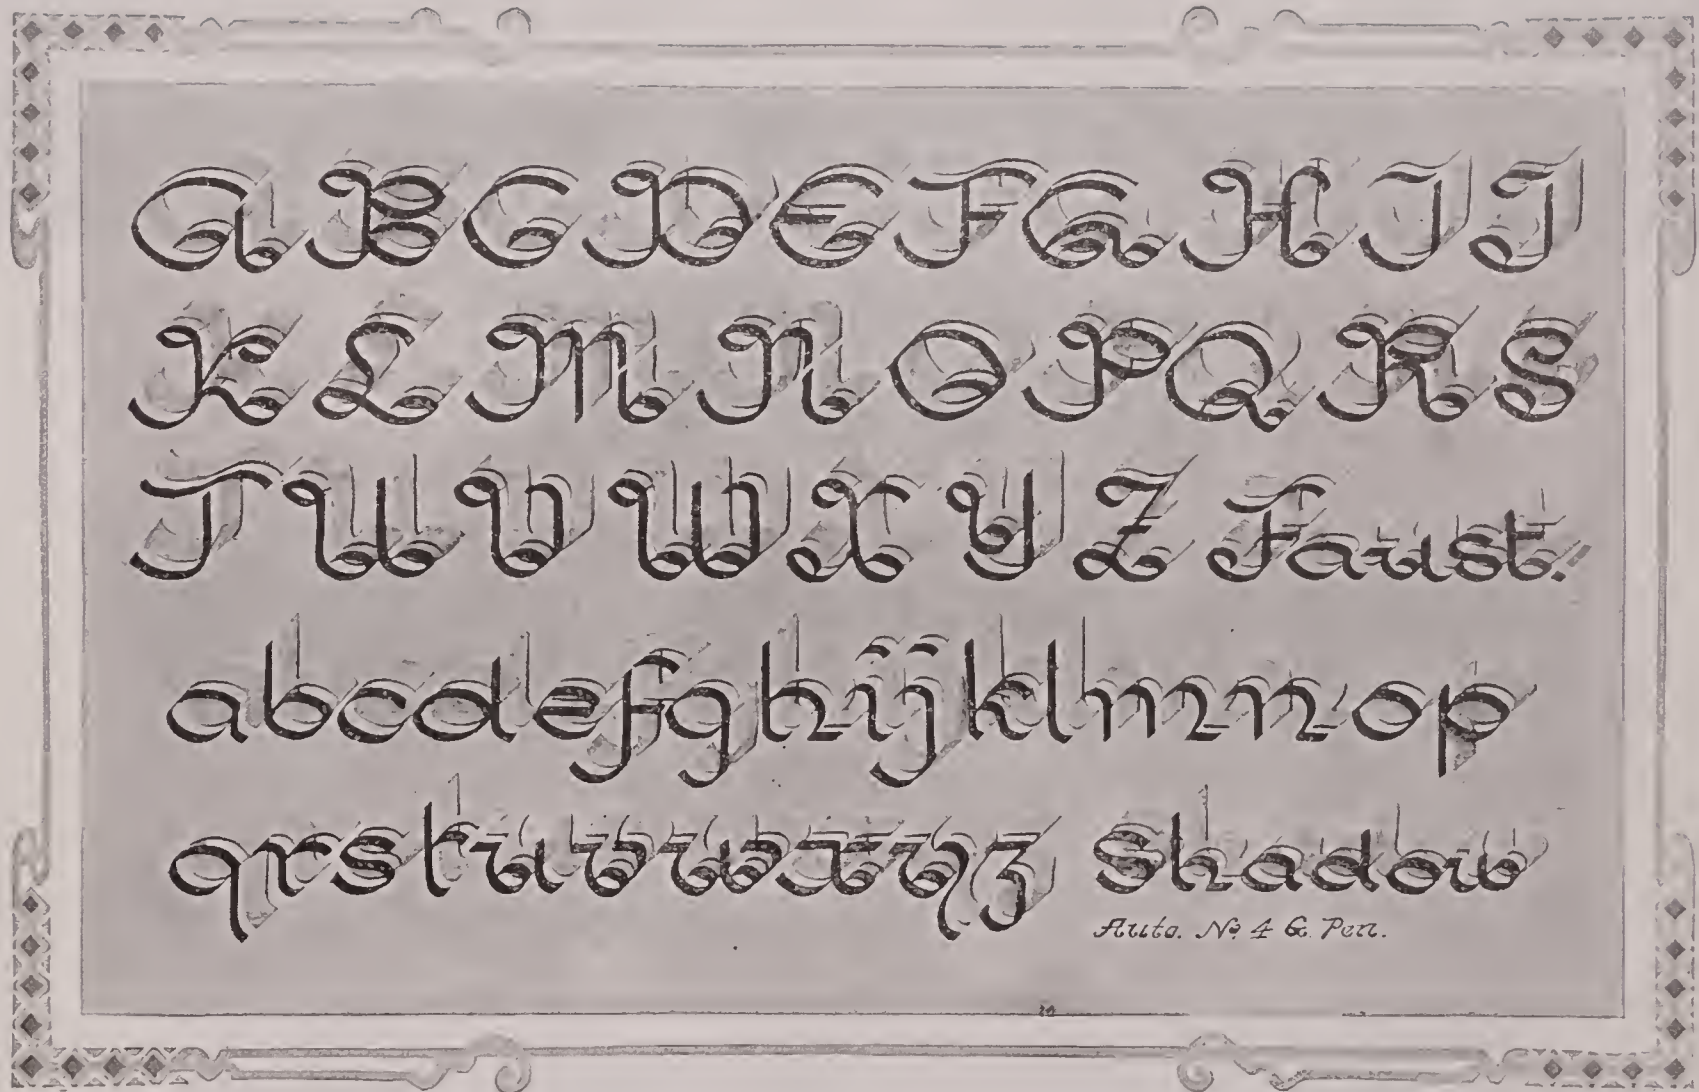 A B C D E F G H I J
K L M N O P Q R S
T U V W X Y Z Faust.
a b c d e f g h i j k l m n o p
q r s t u v w x y z Shadow
Auto. No. 4 G. Pen.